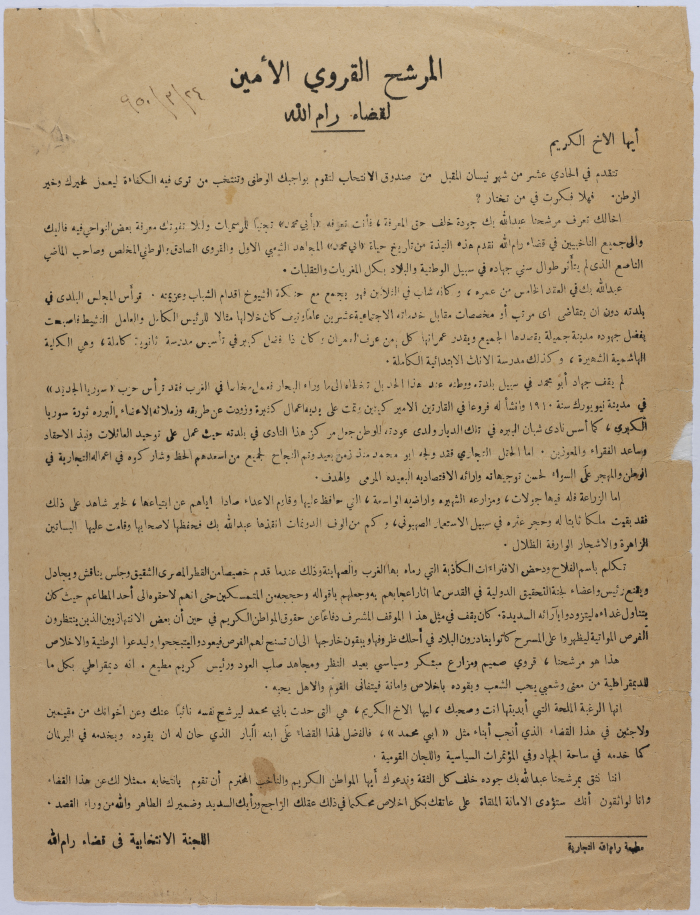 المرشح القروي الأمين
لقضاء رام الله
٢٤/٣/٩٥٠
أيها الاخ الكريم
تتقدم في الحادي عشر من شهر نيسان المقبل من صندوق الانتخاب لتقوم بواجبك الوطني وتنتخب من ترى فيه الكفاءة ليعمل لخيرك وخير
الوطن. فهلا فكرت في من تختار ؟
اخالك تعرف مرشحنا عبدالله بك جودة خلف حق المعرفة ، فأنت تعرفه «بأبي محمد» تجنبا للرسميات ولئلا تفوتك معرفة بعض النواحي فيه فاليك
والى جميع الناخبين في قضاء رام الله نقدم هذه النبذة من تاريخ حياة «ابي محمد» المجاهد الشعبي الاول والقروي الصادق والوطني المخلص وصاحب الماضي
الناصع الذي لم يتأثر طوال سني جهاده في سبيل الوطنية والبلاد بكل المغريات والتقلبات .
عبدالله بك في العقد الخامس من عمره ، وكأنه شاب في الثلاثين فهو يجمع مع حنكة الشيوخ اقدام الشباب وعزيمته . ترأس المجلس البلدي في
بلدته دون ان يتقاضى اي مرتب أو مخصصات مقابل خدماته الاجتماعية عشرين عاما ونيف كان خلالها مثالا للرئيس الكامل والعامل النشيط فاصبحت
بفضل جهوده مدينة جميلة يقصدها الجميع ويقدر عمرانها كل من عرف العمران وكان ذا فضل كبير في تأسيس مدرسة ثانوية كاملة ، وهي الكلية
الهاشمية الشهيرة ، وكذلك مدرسة الاناث الابتدائية الكاملة .
لم يقف جهاد أبو محمد في سبيل بلدته ووطنه عند هذا الحد بل تخطاه الى ما وراء البحار فعمل مخلصا في الغرب فقد ترأس حزب «سوريا الجديد»
في مدينة نيويورك سنة ١٩١٠ وانشأ له فروعا في القارتين الاميركيتين وتمت على يديه اعمال كثيرة وزودت عن طريقه وزملائه الاعضاء البررة ثورة سوريا
الكبرى ، كما أسس نادي شبان البيره في تلك الديار ولدى عودته للوطن جعل مركز هذا النادي في بلدته حيث عمل على توحيد العائلات ونبذ الاحقاد
وساعد الفقراء والمعوزين . اما الحقل التجاري فقد ولجه ابو محمد منذ زمن بعيد وتم النجاح لجميع من اسعدهم الحظ وشاركوه في اعماله التجارية في
الوطن والمهجر على السواء لحسن توجيهاته وارائه الاقتصاديه البعيده المرمى والهدف .
اما الزراعة فله فيها جولات ، ومزارعه الشهيره واراضيه الواسعة ، التي حافظ عليها وقاوم الاعداء صادا اياهم عن ابتياعها ، لخير شاهد على ذلك
فقد بقيت ملكا ثابتا له وحجر عثره في سبيل الاستعمار الصهيوني ، وكم من الوف الدونمات انقذها عبدالله بك فحفظها لاصحابها وقامت عليها البساتين
الزاهرة والاشجار الوارفة الظلال .
تكلم باسم الفلاح ودحض الافتراءات الكاذبة التي رماه بها الغرب والصهاينة وذلك عندما قدم خصيصا من القطر المصري الشقيق وجلس يناقش ويجادل
ويقنع رئيس واعضاء لجنة التحقيق الدولية في القدس مما اثار اعجابهم به وجعلهم باقواله وحججه من المتمسكين حتى انهم لاحقوه الى أحد المطاعم حيث كان
يتناول غداءه ليتزودوا بآرائه السديدة. كان يقف في مثل هذا الموقف المشرف دفاعا عن حقوق المواطن الكريم في حين أن بعض الانتهازيين الذين ينتظرون
الفرص المواتية ليظهروا على المسرح كانوا يغادرون البلاد في أحلك ظروفها ويبقون خارجها الى ان تسنح لهم الفرص فيعودوا ليتبجحوا وليدعوا الوطنية والاخلاص
هذا هو مرشحنا ، قروي صميم ومزارع مبتكر وسياسي بعيد النظر ومجاهد صلب العود ورئيس كريم مطيع . انه ديمقراطي بكل ما
للديمقراطية من معنى وشعبي يحب الشعب ويقوده باخلاص وامانة فيتفانى القوم والاهل بحبه .
انها الرغبة الملحة التي أبديتها انت وصحبك ، ايها الاخ الكريم ، هي التي حدت بابي محمد ليرشح نفسه نائبا عنك وعن اخوانك من مقيمين
ولاجئين في هذا القضاء الذي أنجب أبناء مثل « ابي محمد » ، فالفضل لهذا القضاء على ابنه البار الذي حان له ان يقوده ويخدمه في البرلمان
كما خدمه في ساحة الجهاد وفي المؤتمرات السياسية واللجان القومية .
اننا نثق بمرشحنا عبدالله بك جوده خلف كل الثقة وندعوك أيها المواطن الكريم والناخب المحترم أن تقوم بانتخابه ممثلا لك عن هذا القضاء
وانا لواثقون أنك ستؤدى الامانة الملقاة على عاتقك بكل اخلاص محكما في ذلك عقلك الراجح ورأيك السديد وضميرك الطاهر والله من وراء القصد .
اللجنة الانتخابية في قضاء رام الله
مطبعة رام الله التجارية